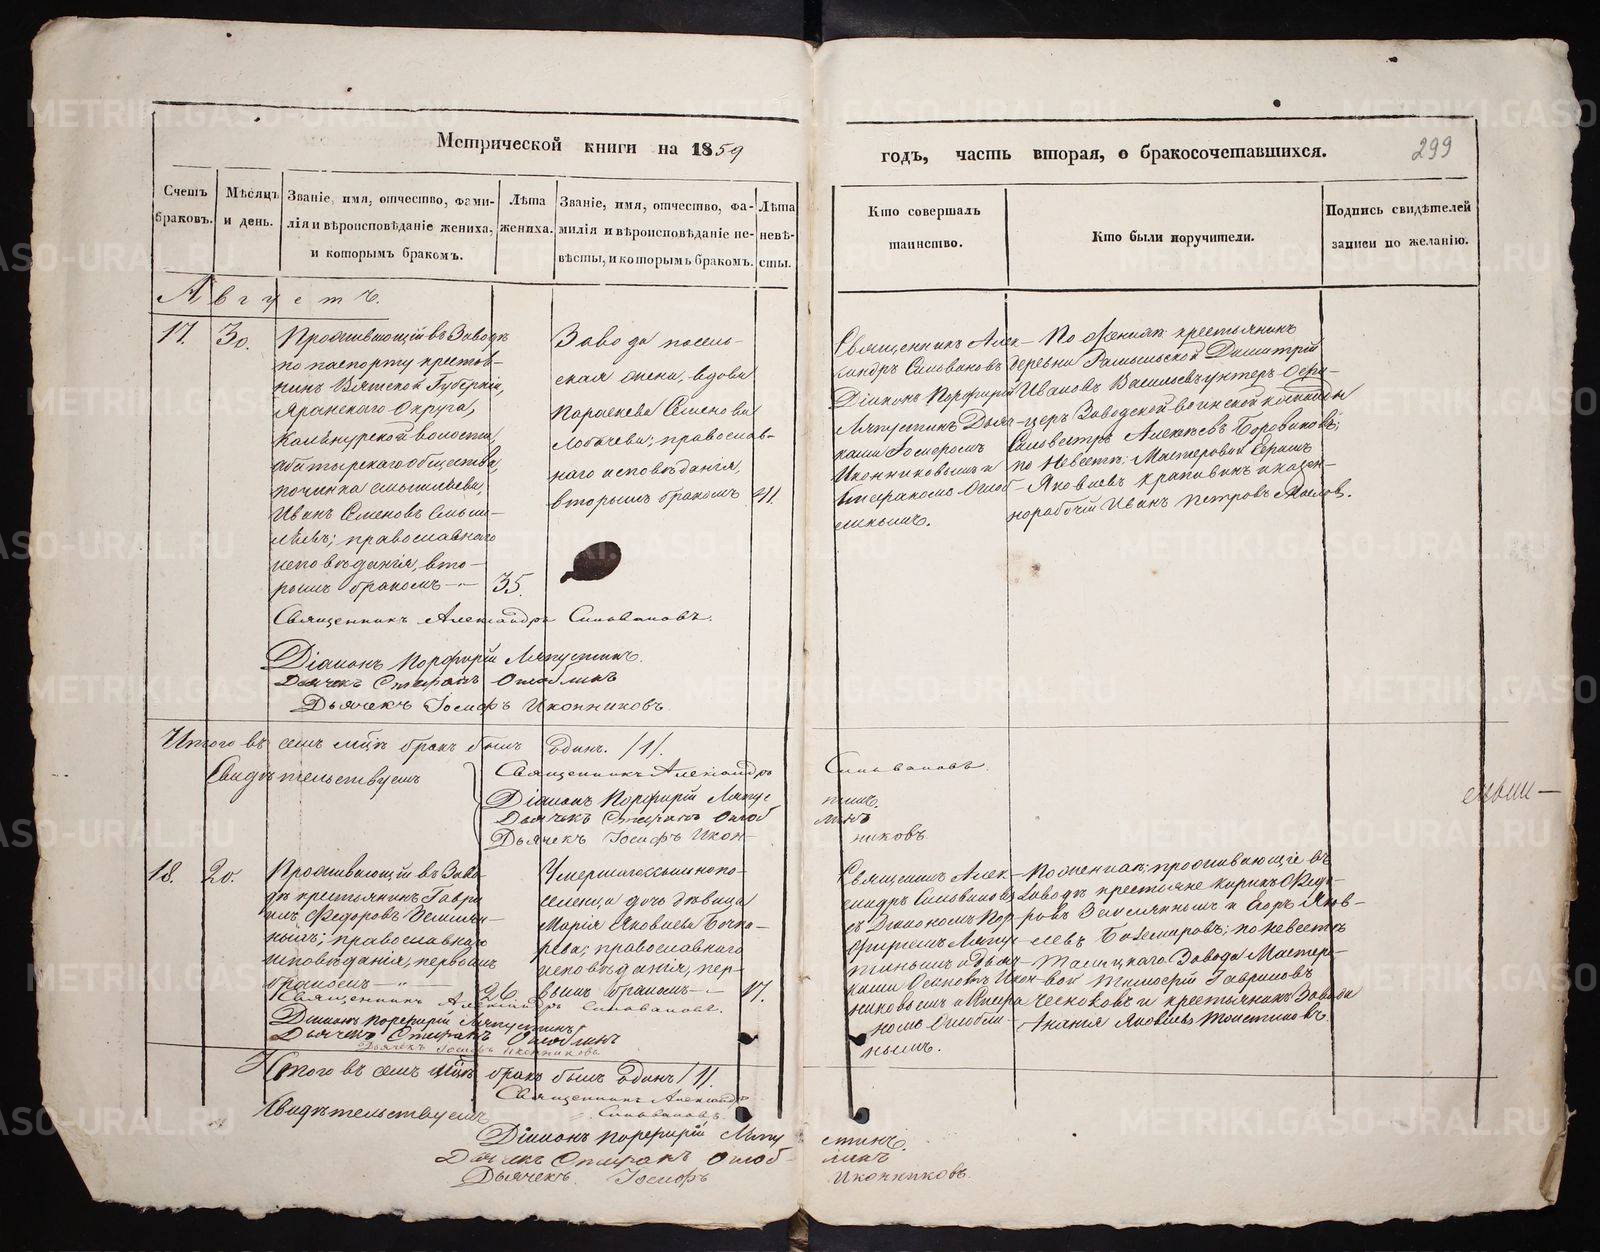 Метрической книги на 1859
годъ, часть вторая, о бракосочетавшихся.
299
Счетъ браковъ.
Мѣсяцъ и день.
Званіе, имя, отчество, фами-
лія и вѣроисповѣданіе жениха,
и которымъ бракомъ.
Лѣта жениха.
Званіе, имя, отчество, фа-
милія и вѣроисповѣданіе не-
вѣсты, и которымъ бракомъ.
Лѣта невѣ-
сты.
Кто совершалъ
таинство.
Кто были поручители.
Подпись свидѣтелей
записи по желанію.
Августъ.
17.
30.
Проживающій въ Заводѣ
по паспорту крестья-
нинъ Вятской Губерніи,
Яранскаго Округа,
волости,
общества,
починка
Иванъ Семеновъ
православнаго
исповѣданія, вто-
рымъ бракомъ
35.
Завода посель-
ская жена, вдова
Параскева Семенова
православ-
наго исповѣданія,
вторымъ бракомъ
41.
Священникъ Алек-
сандръ Сильвановъ
Діаконъ Порфирій
Ляпустинъ Дьяч-
ками Іосифомъ
Иконниковымъ и
Стефаномъ Оглоб-
линымъ.
По женихѣ: крестьянинъ
деревни Димитрій
Ивановъ Васильевъ унтеръ-офи-
церъ Заводской воинской команды
Алексѣевъ Боровиковъ;
по невѣстѣ: Мастеровой
Яковлевъ и казен-
норабочій Иванъ Петровъ Масловъ.
Священникъ Александръ Сильвановъ.
Діаконъ Порфирій Ляпустинъ.
Дьячекъ Стефанъ Оглоблинъ
Дьячекъ Іосифъ Иконниковъ.
Итого въ семъ мцѣ бракъ былъ одинъ. /1/.
Свидѣтельствуемъ
Священникъ Александръ Сильвановъ.
Діаконъ Порфирій Ляпустинъ.
Дьячекъ Стефанъ Оглоблинъ
Дьячекъ Іосифъ Иконниковъ
18.
20.
Проживающій въ Заво-
дѣ крестьянинъ Гаври-
илъ Федоровъ Земляни-
православнаго
исповѣданія, первымъ
бракомъ
26.
Умершаго
селенца дочь дѣвица
Марія Яковлева Бочка-
рева, православнаго
исповѣданія, пер-
вымъ бракомъ
17.
Священникъ Алек-
сандръ Сильвановъ
съ Діакономъ Пор-
фиріемъ Ляпус-
тинымъ и Дьяч-
ками Іосифомъ Икон-
никовымъ и Стефа-
номъ Оглобли-
нымъ.
По женихѣ: проживающіе въ
Заводѣ крестьяне Кирикъ Федо-
ровъ и Егоръ Яков-
левъ по невѣстѣ
Талицкаго Завода Мастер-
вой Тимофей Гавриловъ
Чесноковъ и крестьянинъ Завода
Ананія Яковлевъ Толстиковъ.
Священникъ Александръ Сильвановъ.
Діаконъ Порфирій Ляпустинъ
Дьячекъ Стефанъ Оглоблинъ
Дьячекъ Іосифъ Иконниковъ
Итого въ семъ мцѣ бракъ былъ одинъ /1/.
Свидѣтельствуемъ
Священникъ Александръ
Сильвановъ.
Діаконъ Порфирій Ляпустинъ.
Дьячекъ Стефанъ Оглоблинъ
Дьячекъ Іосифъ Иконниковъ.
METRIKI.GASO-URAL.RU